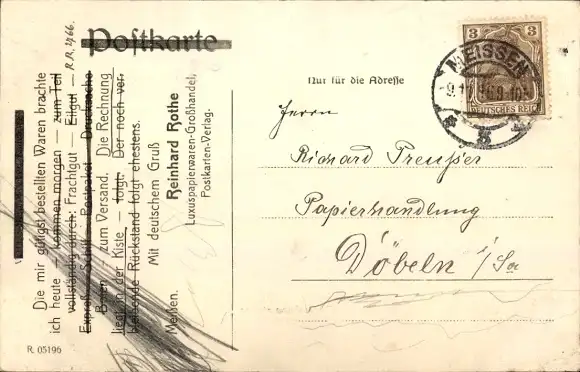 Postkarte
Nur für die Adresse
3 3
DEUTSCHES REICH
MEISSEN
Herrn
Richard Preußer
Papierhandlung
Döbeln i/Sa
R.R. 2766.
Die mir gütigst bestellten Waren brachte
ich heute — kommen morgen — zum Teil
vollständig durch: Frachtgut — Eilgut —
Expreß — Schiff — Postpaket — Drucksache
Boten — zum Versand. Die Rechnung
liegt in der Kiste — folgt. Der noch ver-
bleibende Rückstand folgt ehestens.
Mit deutschem Gruß
Reinhard Rothe
Luxuspapierwaren-Großhandel,
Postkarten-Verlag.
Meißen.
R. 05196